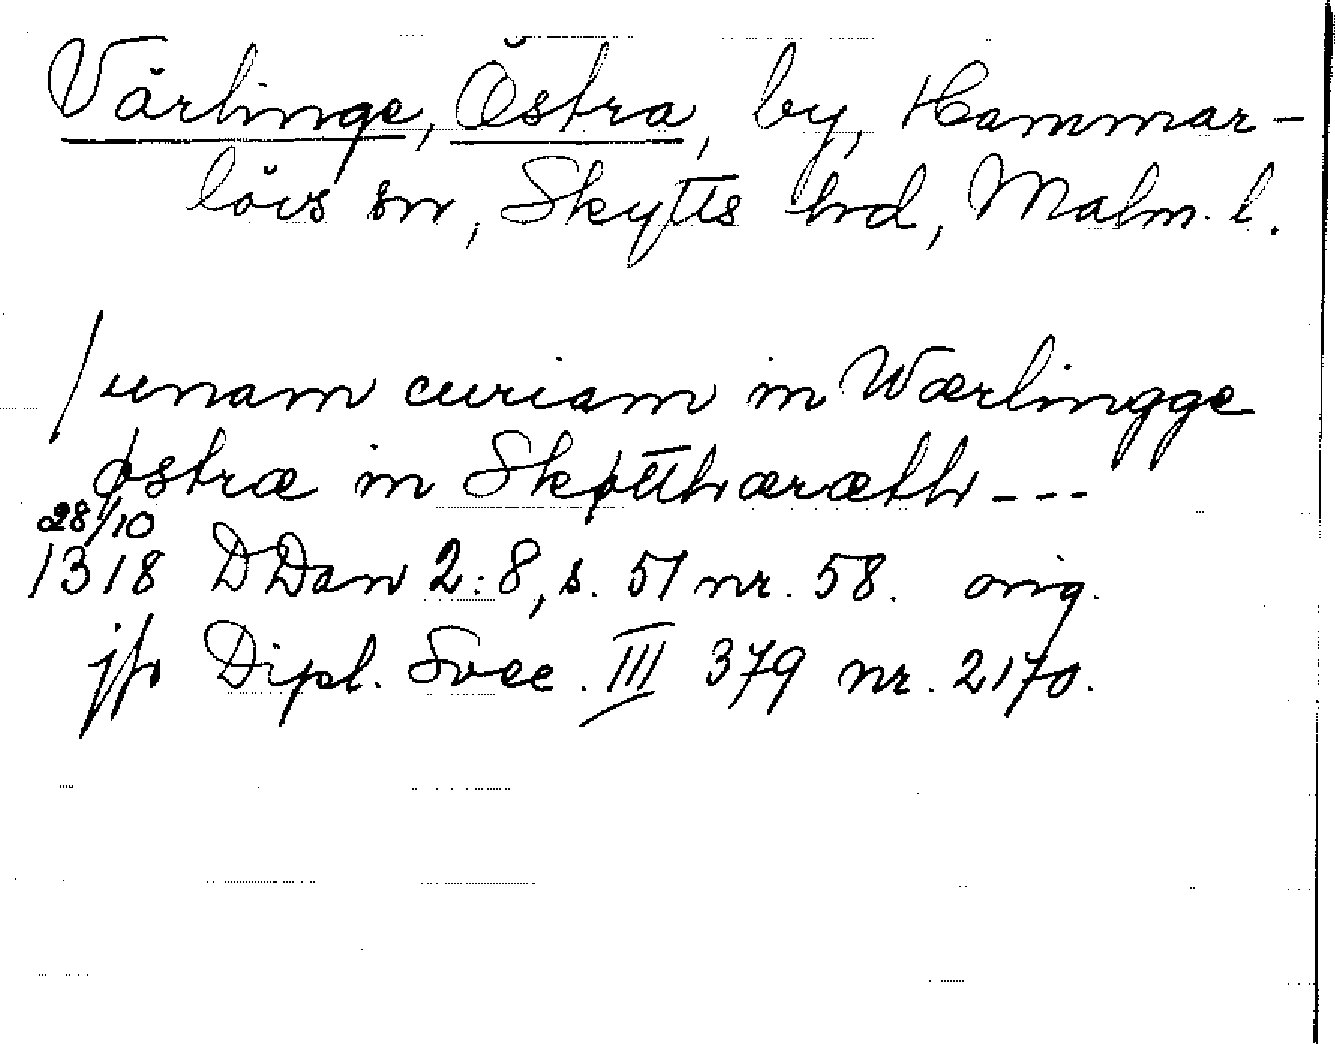 Värlinge, Östra, by, Hammar-
lövs sn, Skytts hd, Malm. l.
/unam curiam in Wærlingge
østræ in Skøtthæræth ---
28/10
1318 DDan 2:8, s. 51 nr. 58. orig.
jfr Dipl. Svec. III 379 nr. 2170.